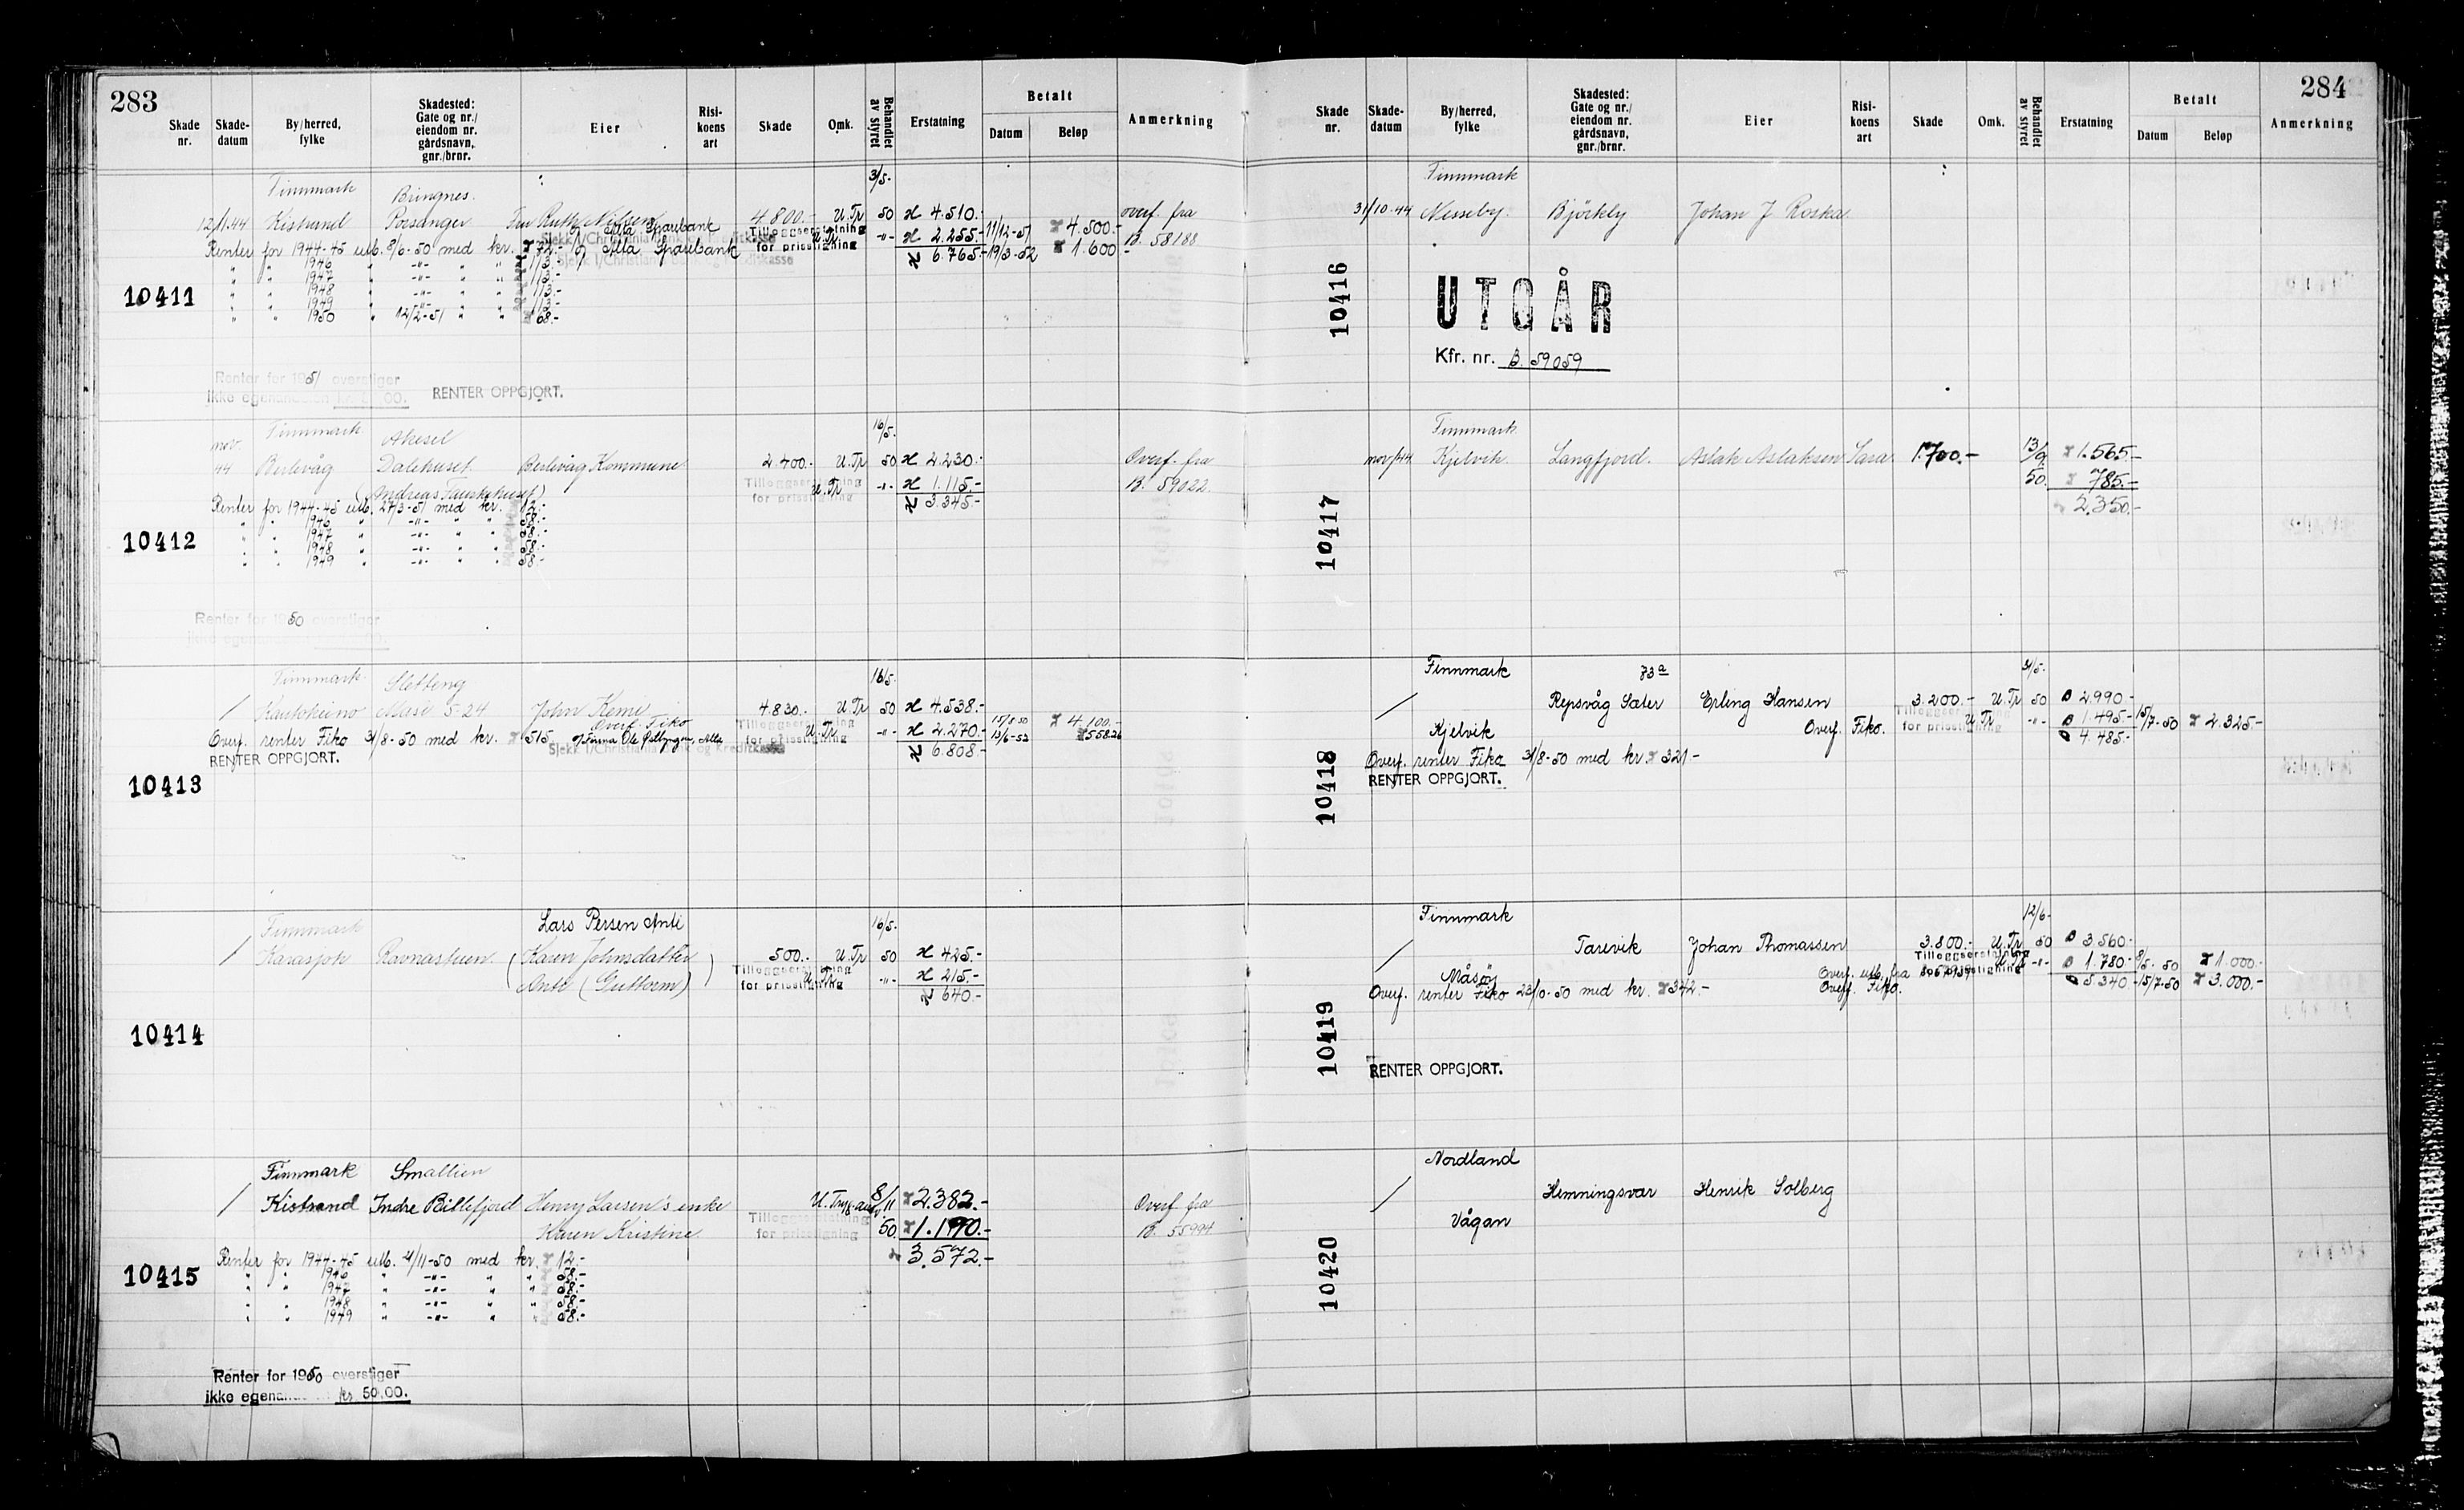 283
Skade nr.
Skade-datum
By/herred, fylke
Skadested: Gate og nr./ eiendom nr. gårdsnavn, gnr./brnr.
Eier
Risi-koens art
Skade
Omk.
Behandlet av styret
Erstatning
Betalt
Datum
Beløp
Anmerkning
10411
Finnmark Bringnes 3/5.
12/1.44 Kistrand Porsanger Fru Ruth Nilsen 4 800.- U.Tr 50 4.510.- 4.500.- overf. fra
Tilleggserstatning for prisstigning U.Tr. -"- 2.255.- 11/12-51 B. 58188
Alta Sparebank
Renter for 1944-45 utb. 8/6-50 med kr. 72.- Alta Sparebank 6.765.- 19/3-52 1.600.-
" " 1946 " -"- " " 113.-
" " 1947 " -"- " " 113.-
" " 1948 " -"- " " 113.-
" " 1949 " -"- " " 113.-
" " 1950 " 12/2-51 " " 68.-
Renter for 1951 overstiger
ikke egenandelen RENTER OPPGJORT.
10412
nov. Finnmark Aksel 16/5.
44 Berlevåg Dalehuset Berlevåg Kommune 2 400.- U.Tr 50 2.230.- Overf. fra
Tilleggserstatning for prisstigning U.Tr -"- 1.115.- B. 59022.
3.345.-
Renter for 1944-45 utb. 27/3-51 med kr. 12.-
" " 1946 " -"- " " 58.-
" " 1947 " -"- " " 58.-
" " 1948 " -"- " " 58.-
" " 1949 " -"- " " 58.-
Renter for 1950 overstiger
ikke egenan
10413
Finnmark Sletteng 16/5.
/ Kautokeino Masi 5-24 John Kemi 4.830.- U.Tr 50 4.538.- 15/8-50 4.100.-
Overf. Fiko
Tilleggserstatning for prisstigning U.Tr. -"- 2.270.- 13/6-52 558.26
Overf. renter Fiko 3/8-50 med kr. 515 Firma Ole Alta 6.808.-
RENTER OPPGJORT.
10414
Finnmark Lars Persen Anti 16/5.
/ Karasjok Ravnastuen (Karen Johnsdatter 500.- U.Tr 50 425.-
Anti (Guttorm) ) Tilleggserstatning for prisstigning U.Tr. -"- 215.-
640.-
10415
Finnmark Smallien
/ Kistrand Indre Billefjord Henry Larsen's enke 8/11 2.382.- Overf fra
Karen Kristine Tilleggserstatning for prisstigning 50. 1.190.- B. 55994
3.572.-
Renter for 1944-45 utb. 4/11-50 med kr. 12.-
" " 1946 " -"- " " 58.-
" " 1947 " -"- " " 58.-
" " 1948 " -"- " " 58.-
" " 1949 " -"- " " 58.-
Renter for 1950 overstiger
ikke egenan kr 50.00.
284
Skade nr.
Skade-datum
By/herred, fylke
Skadested: Gate og nr./ eiendom nr. gårdsnavn, gnr./brnr.
Eier
Risi-koens art
Skade
Omk.
Behandlet av styret
Erstatning
Betalt
Datum
Beløp
Anmerkning
10416
Finnmark
31/10.44 Nesseby. Björkly Johan J Roska.
UTGÅR
Kfr. nr. B. 59059
10417
Finnmark
nov/44 Kjelvik. Langfjord. Aslak Aslaksen Sara 1.700.- 13/9. 1.565.-
50. 785.-
2.350.-
10418
Finnmark 73a 4/5.
/ Repsvåg Sæter Erling Hansen 3.200.- U.Tr 50 2990.-
Kjelvik Overf. Fiko. Tilleggserstatning for prisstigning U.Tr -"- 1.495.- 15/7-50 2.325.-
4.485.-
Overf. renter Fiko 3/8-50 med kr. 321-
RENTER OPPGJORT.
10419
Finnmark 12/6-
/ Tarevik Johan Thomassen 3.800.- U.Tr. 50 3.560.-
Måsøy Overf. utb. fra Tilleggserstatning for prisstigning U.Tr -"- 1.780.- 50 1.000.-
Overf. renter Fiko 23/10-50 med kr. 342.- Overf. Fiko. 5.340.- 15/7-50 3.000.-
RENTER OPPGJORT.
10420
Nordland
/ Hemningsvær Henrik Solberg
Vågan